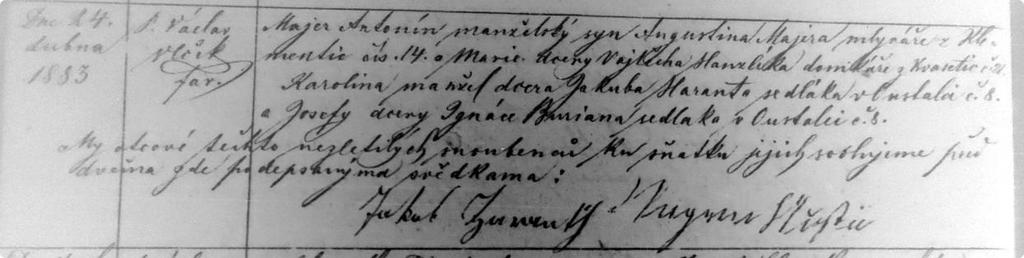 Dne 24.
dubna
1883
P. Václav
Vlček
far.
Majer Antonín manželský syn Augustina Majera mlynáře z Kle-
mentic čís. 14. a Marie dcery Vojtěcha Hanzlíka domkáře z Kvasetic č.
Karolina manžel dcera Jakuba Haranta sedláka v Oustalci č. 8.
a Josefy dcery Ignáce Buriana sedláka v Oustalci č. 8.
My otcové těchto nezletilých snoubenců ku sňatku jejich svolujeme před
dvěma zde podepsanýma svědkama:
Jakub